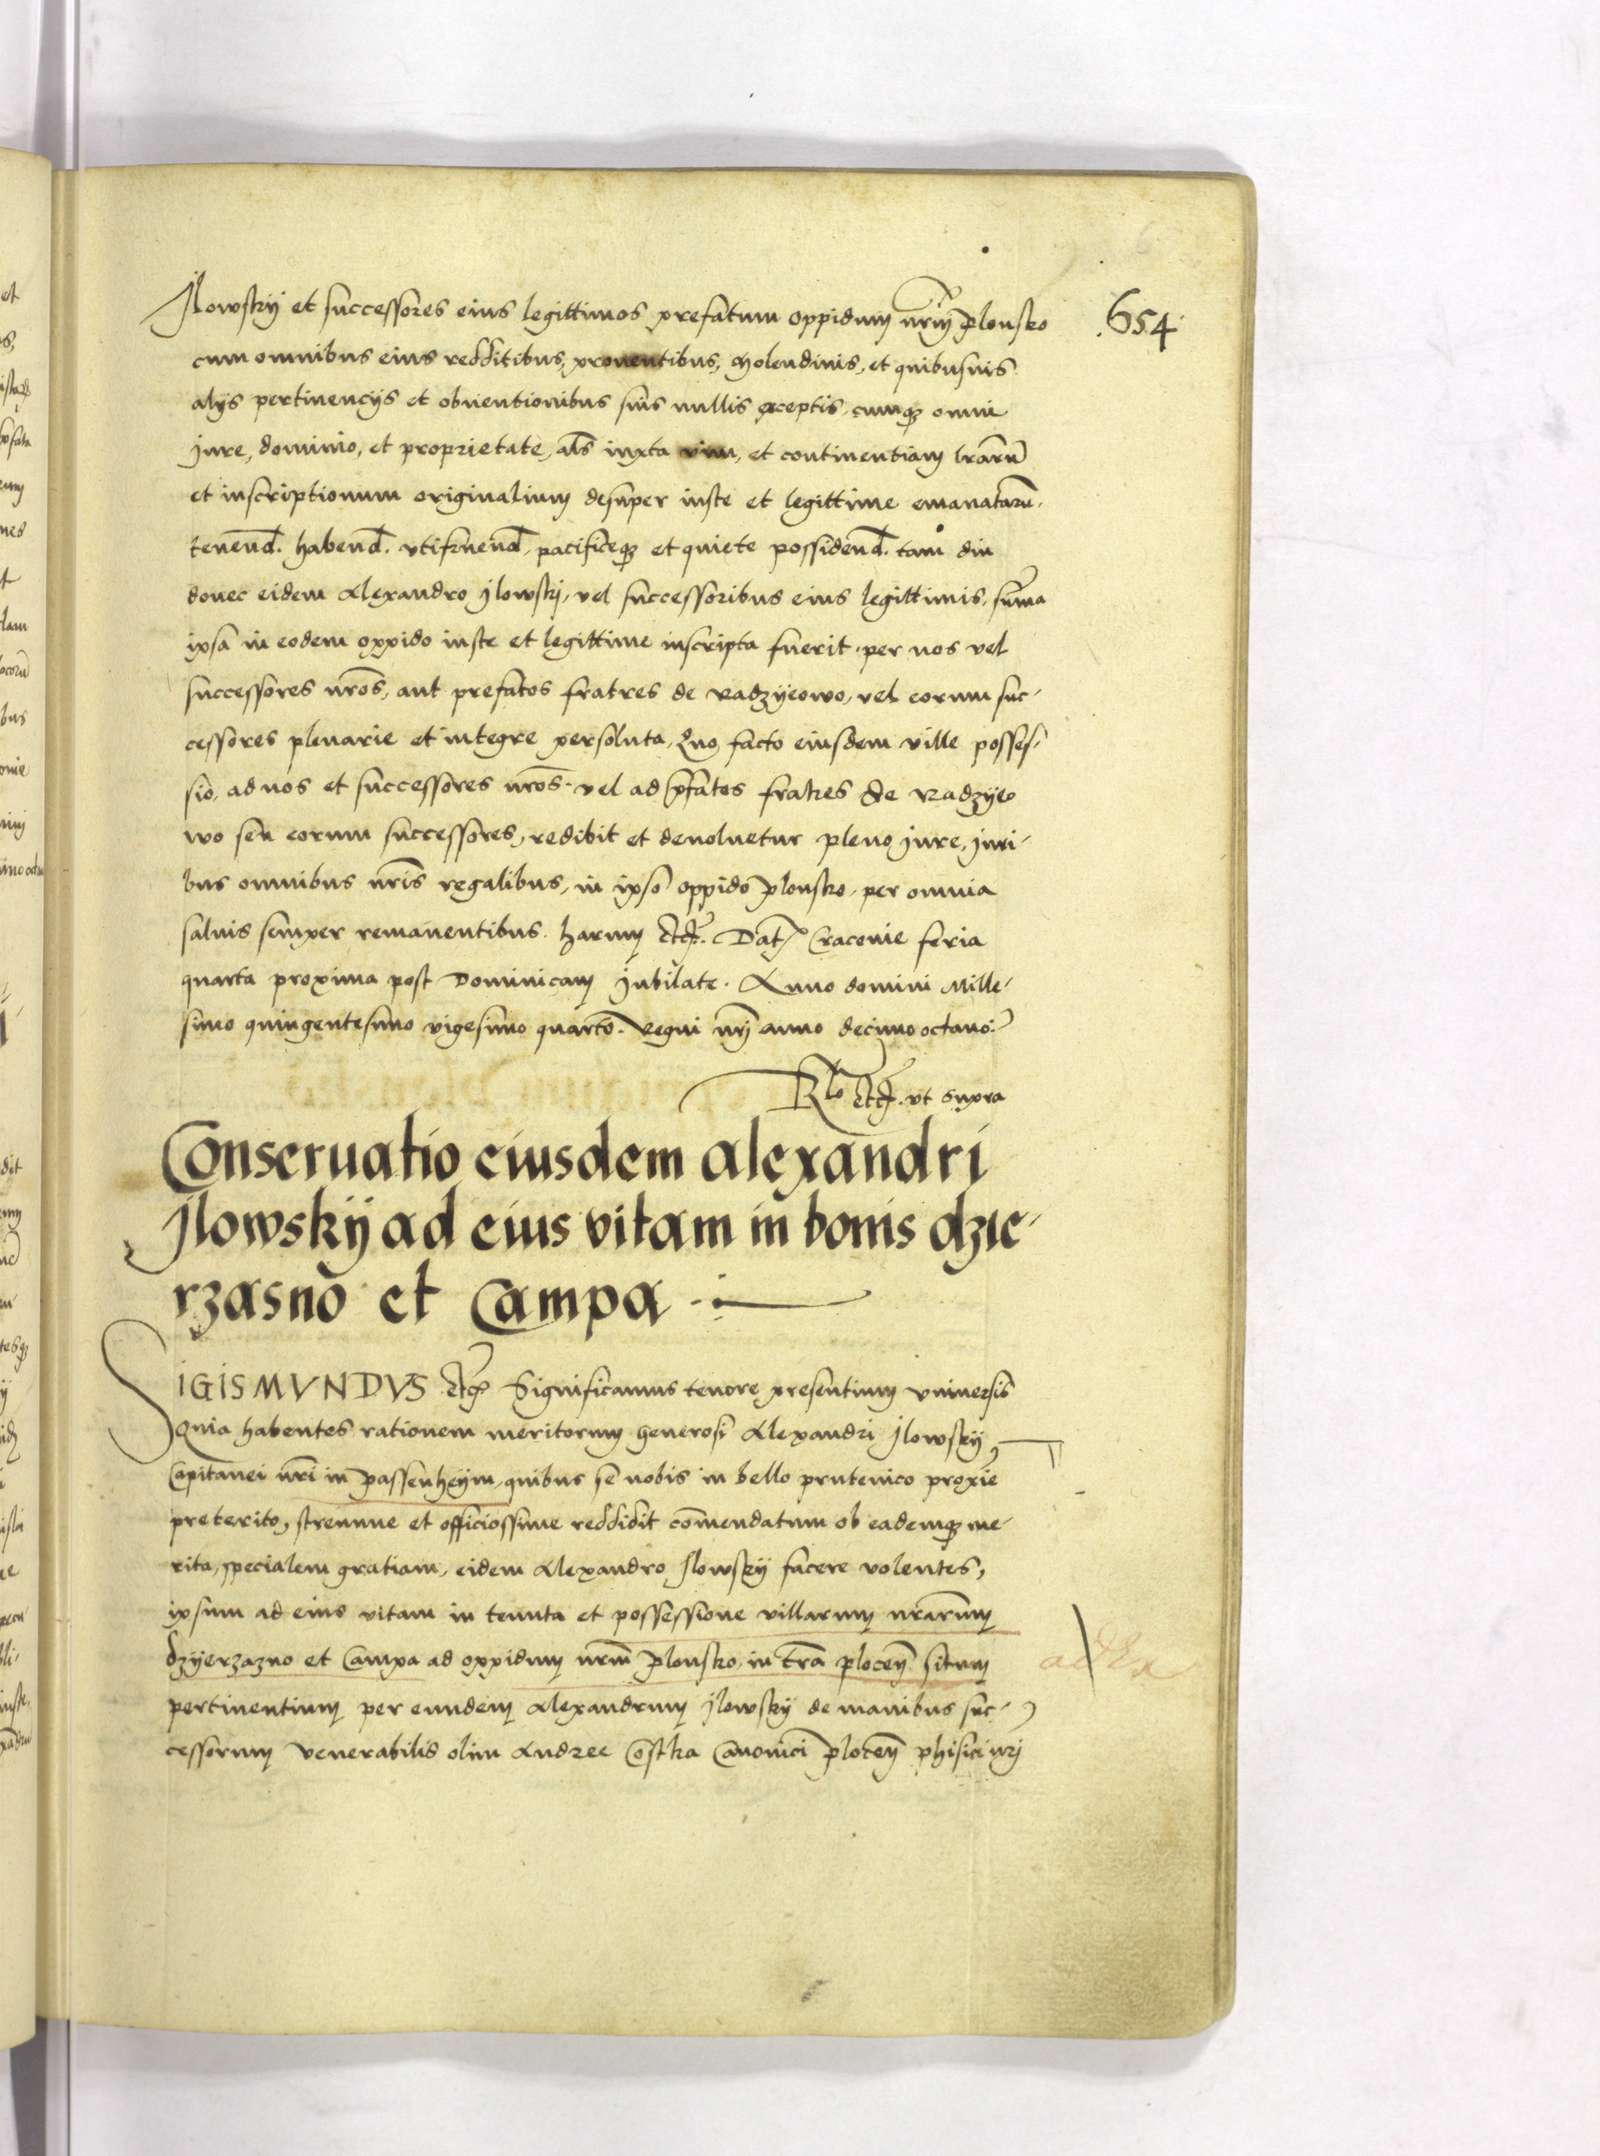 Jlowskÿ et successores eius legittimos prefatum oppidum nrm̄ Plonsko
654
cum omnibus eius redditibus, proventibus, Molendinis, et quibusuis
alijs pertinencijs et obuentionibus suis nullis exceptis, cumqȝ omni
Jure, dominio, et proprietate, als̄ iuxta vim, et continentiam lrarū
et inscriptionum originalium desuper iuste et legittime emanatarū.
tenend. habend. vtifruend, pacificeqȝ et quiete possidend. tam diu
donec eidem Alexandro Jlowskj, vel successoribus eius legittimis, sum̄a
ipsa in eodem oppido iuste et legittime inscripta fuerit, per nos vel
successores nrōs, aut prefatos fratres de Radzÿeowo, vel eorum suc-
cessores plenarie et integre persoluta, Quo facto eiusdem ville posses-
sio, ad nos et successores nrōs, vel ad p̄fatos fratres de Radzÿeo
wo seu eorum successores, redibit et deuoluetur pleno Jure, Juri-
bus omnibus nrīs regalibus, in ipso oppido Plonsko, per omnia
saluis semper remanentibus. harum etc̄. Dat̄ Cracouie feria
quarta proxima post Dominicam Jubilate. Anno domini Mille-
simo quingentesimo vigesimo quarto. Regni nrj̄ anno decimo octauo.
Rlō etc̄. vt supra
Conseruatio eiusdem alexandri
Jlowskÿ ad eius vitam in bonis dzie-
rzasno et Campa
SIGISMVNDVS etc̄ Significamus tenore presentium vniuersis
Quia habentes rationem meritorum generosi Alexandri Jlowskÿ,
Capitanei nrī in passenheÿm, quibus se nobis in bello prutenico proxīe
preterito, strennue et officiossime reddidit com̄endatum ob eademqȝ me-
rita, specialem gratiam, eidem Alexandro Jlowskÿ facere volentes,
ipsum ad eius vitam in tenuta et possessione villarum nrārum
dzÿerzazno et Campa ad oppidum nrm̄ Plonsko, in trā plocen̄ situm
pertinentium per eundem Alexandrum Jlowskÿ de manibus suc-
cessorum Venerabilis olim Andree Costka Canonici plocen̄ phisici nrj